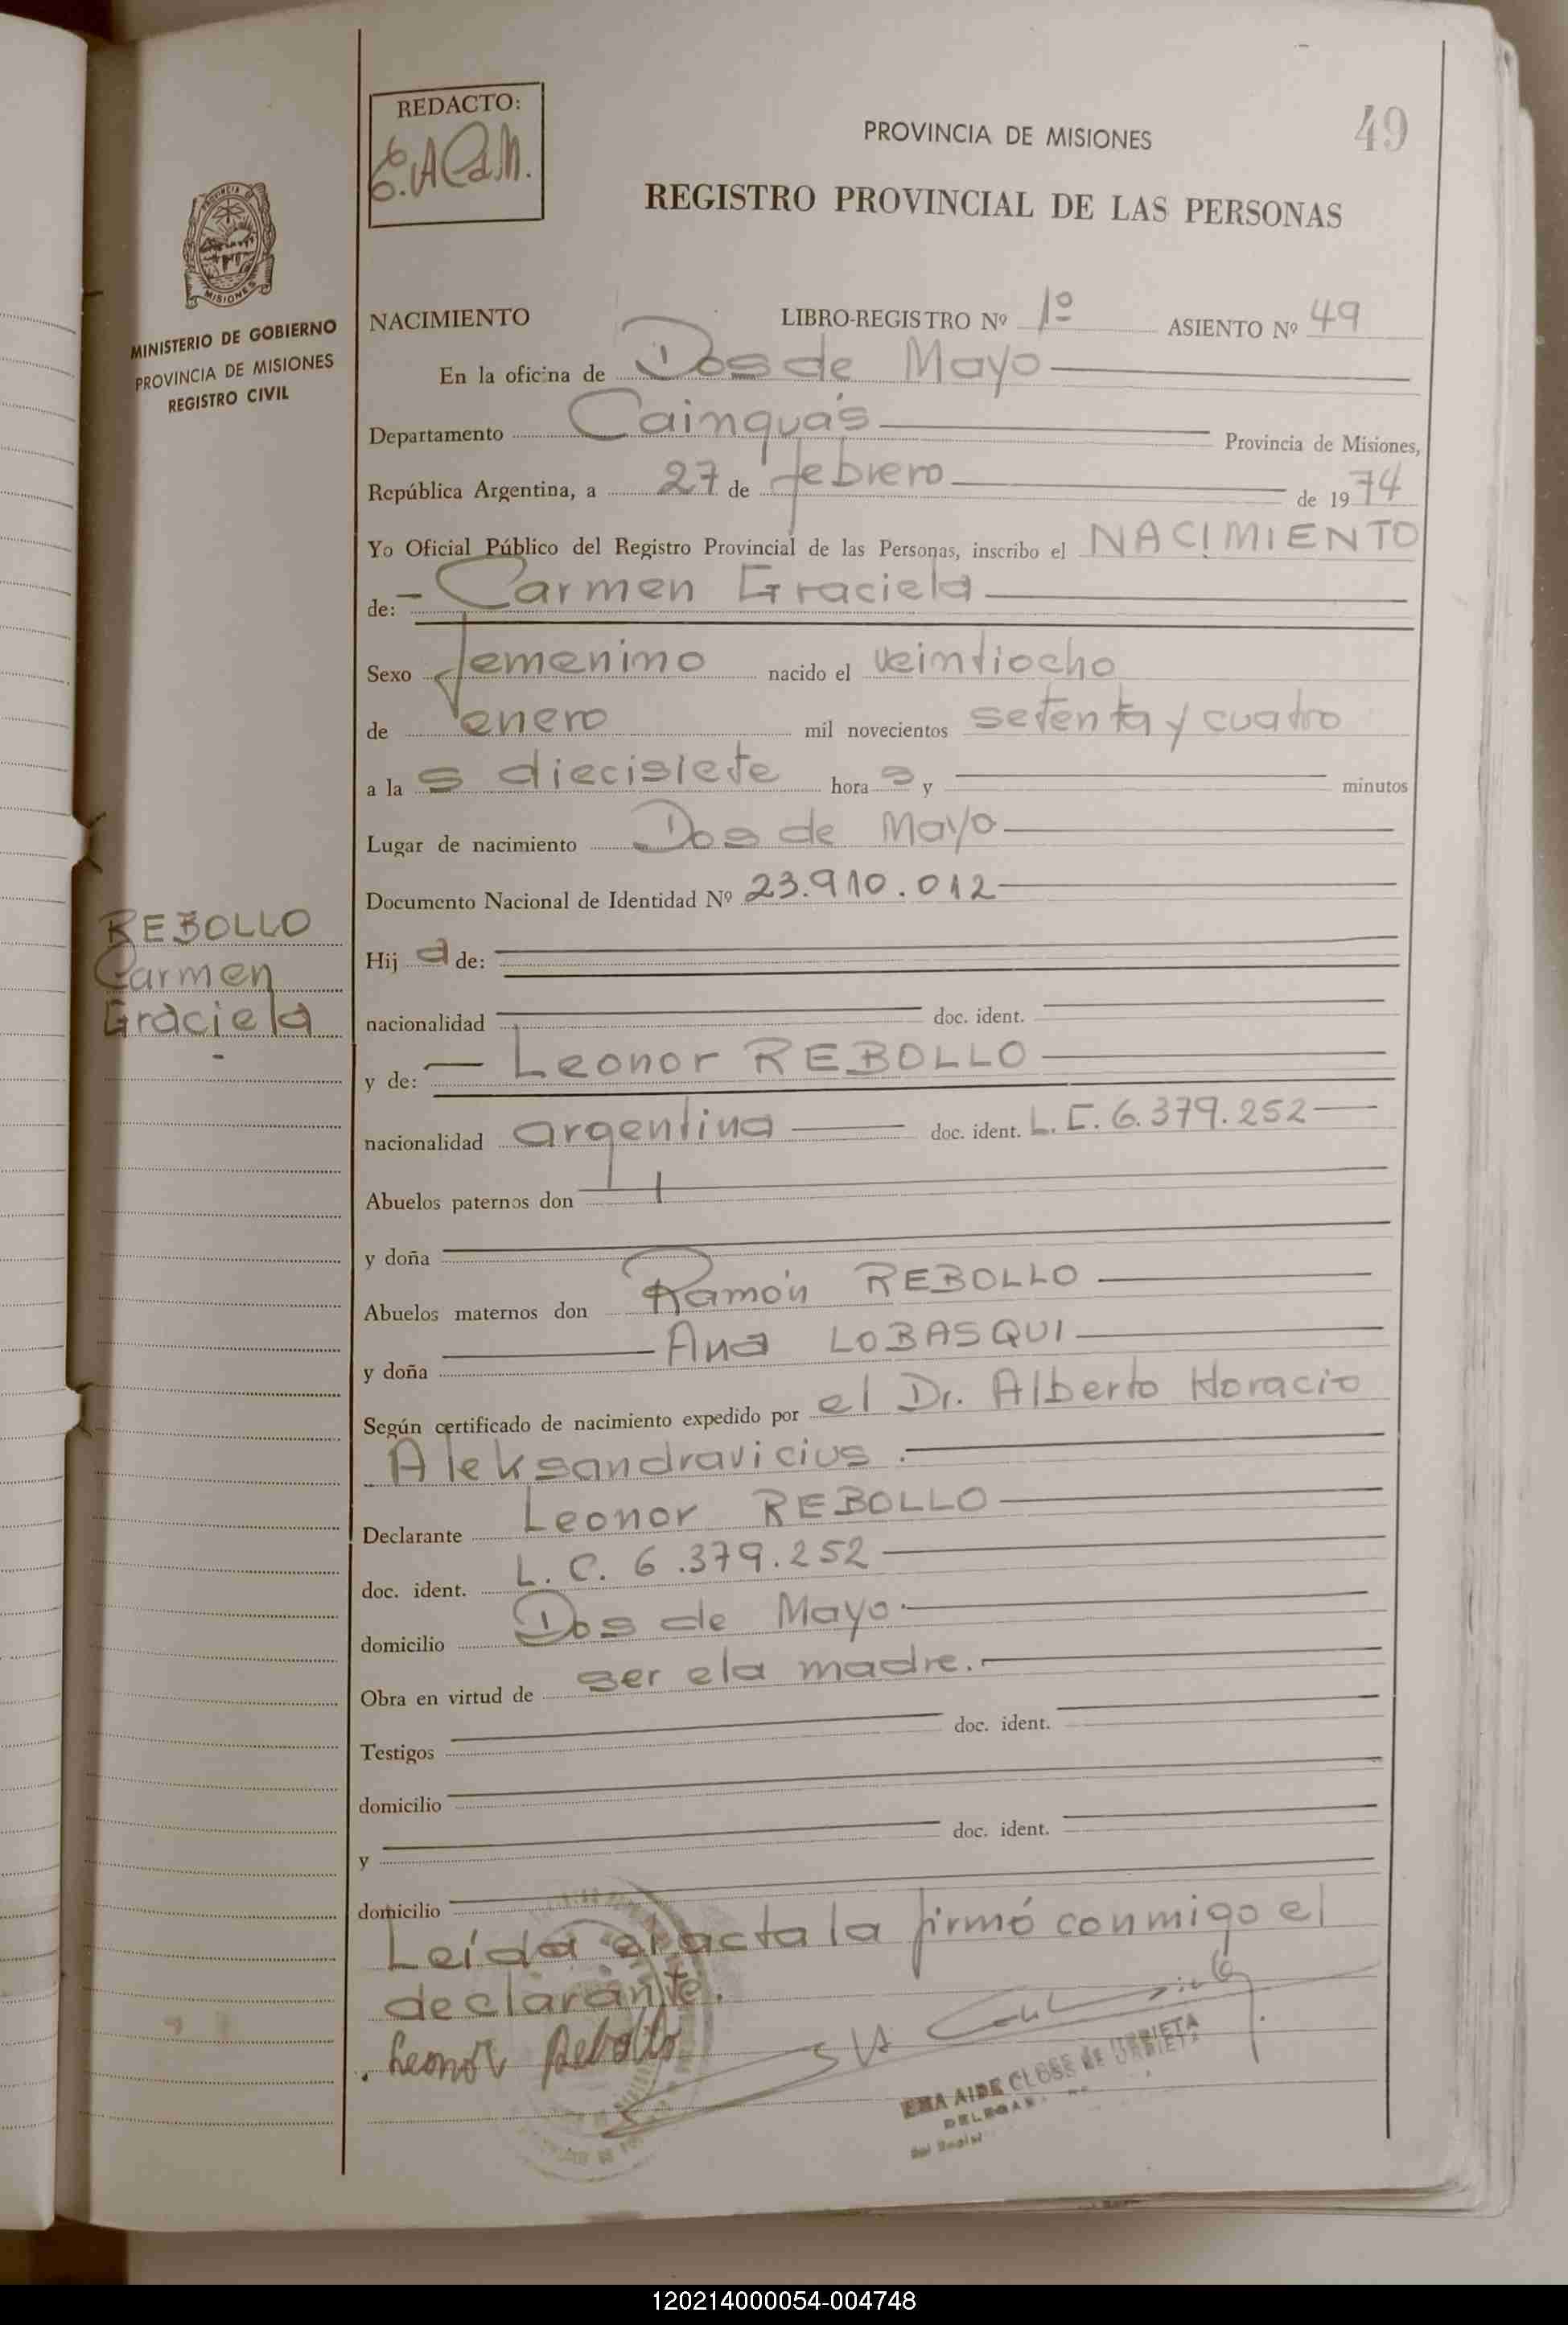 REDACTO:
E.A.C.d.M.
PROVINCIA DE MISIONES
49
REGISTRO PROVINCIAL DE LAS PERSONAS
MISIONES
MINISTERIO DE GOBIERNO
PROVINCIA DE MISIONES
REGISTRO CIVIL
NACIMIENTO LIBRO-REGISTRO Nº 1º ASIENTO Nº 49
En la oficina de Dos de Mayo
Departamento Cainguás Provincia de Misiones,
República Argentina, a 27 de febrero de 1974
Yo Oficial Público del Registro Provincial de las Personas, inscribo el NACIMIENTO
de: Carmen Graciela
Sexo femenino nacido el veintiocho
de enero mil novecientos setenta y cuatro
a las diecisiete horas y minutos
Lugar de nacimiento Dos de Mayo
Documento Nacional de Identidad Nº 23.910.012
REBOLLO
Carmen
Graciela
Hija de:
nacionalidad doc. ident.
y de: Leonor REBOLLO
nacionalidad argentina doc. ident. L.C. 6.379.252
Abuelos paternos don
y doña
Abuelos maternos don Ramón REBOLLO
y doña Ana LOBASQUI
Según certificado de nacimiento expedido por el Dr. Alberto Horacio
Aleksandravicius.
Declarante Leonor REBOLLO
doc. ident. L.C. 6.379.252
domicilio Dos de Mayo.
Obra en virtud de ser ela madre.
Testigos doc. ident.
domicilio
y doc. ident.
domicilio
Leída el acta la firmó conmigo el
declarante.
Leonor Rebollo
EMA AIDE CLOSS de URRIETA
120214000054-004748